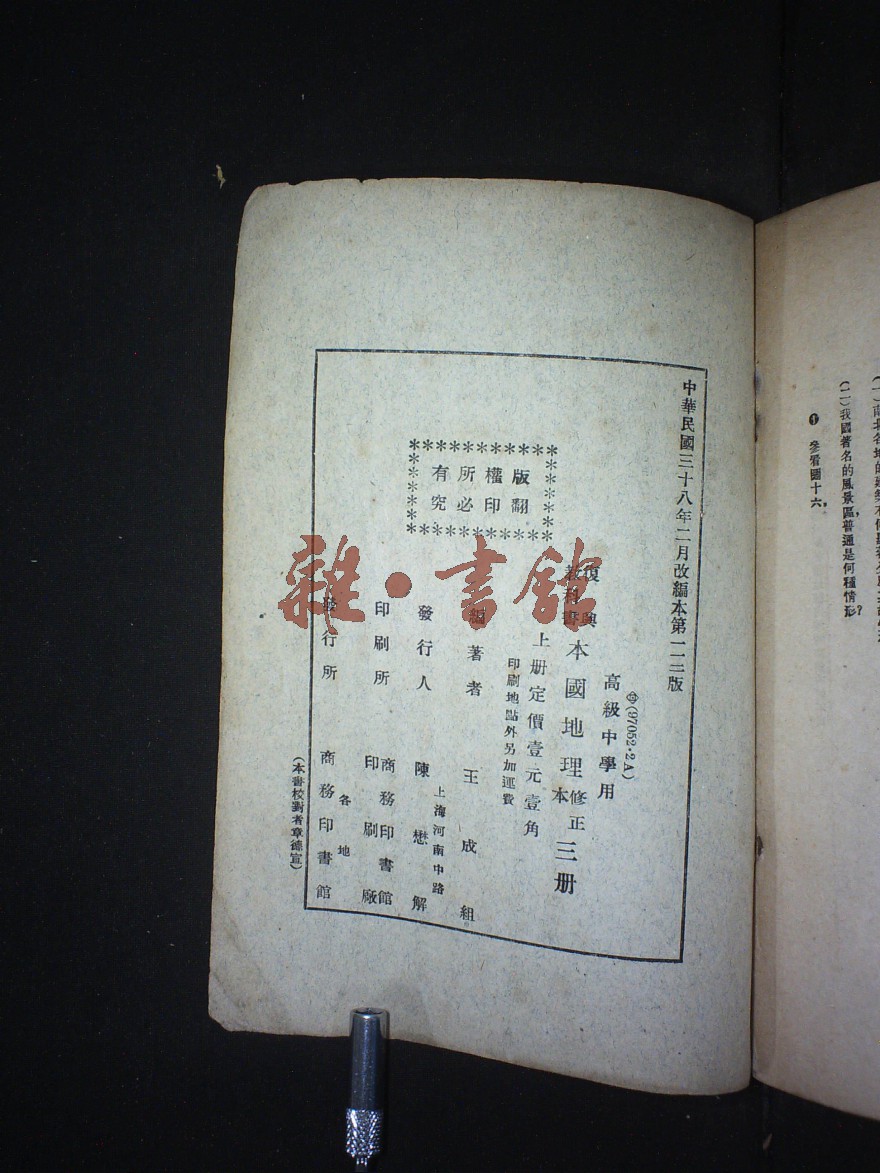 中華民國三十八年二月改編本第一一二版
(97052·2A)
高級中學用
復興
教科書
本國地理
修正
本
三册
上册定價壹元壹角
印刷地點外另加運費
版權所有
翻印必究
編著者 王成組
上海河南中路
發行人 陳懋解
印刷所 商務印書館
印刷廠
各地
發行所 商務印書館
(本書校對者章德宣)
(二)我國著名的風景區,普通是何種情形?
❶ 參看圖十六。
雜·書館